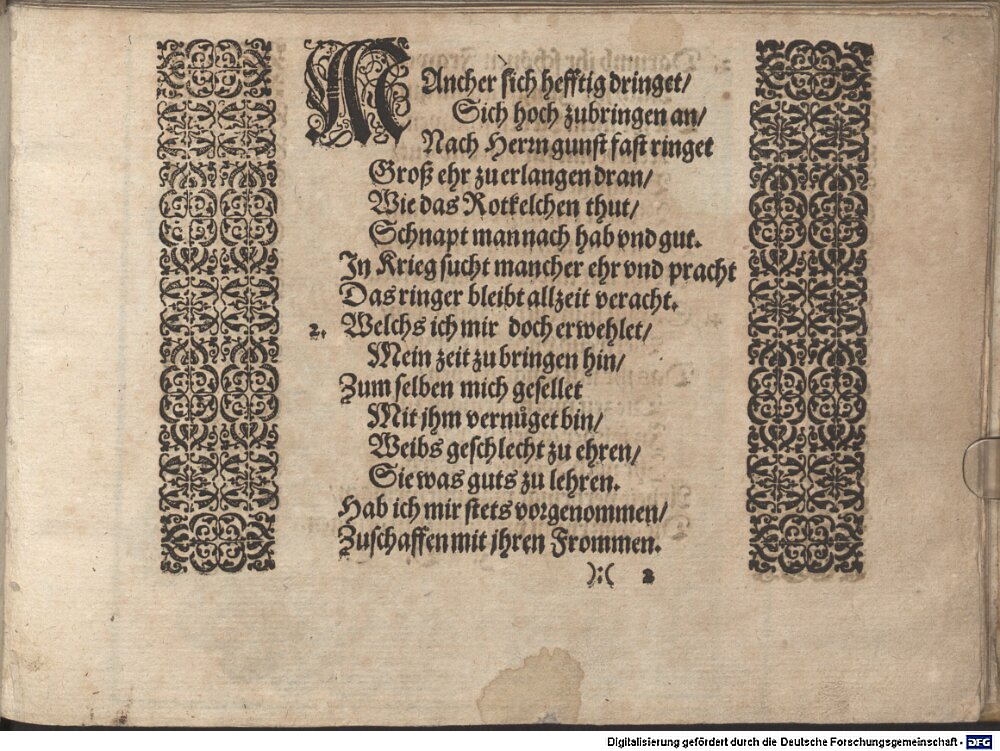 MAncher sich hefftig dringet/
Sich hoch zubringen an/
Nach Herrn gunst fast ringet
Groß ehr zu erlangen dran/
Wie das Rotkelchen thut/
Schnapt man nach hab vnd gut.
In Krieg sucht mancher ehr vnd pracht
Das ringer bleibt allzeit veracht.
2. Welchs ich mir doch erwehlet/
Mein zeit zu bringen hin/
Zum selben mich gesellet
Mit jhm vernüget bin/
Weibs geschlecht zu ehren/
Sie was guts zu lehren.
Hab ich mir stets vorgenommen/
Zuschaffen mit jhren Frommen.
):( 2
Digitalisierung gefördert durch die Deutsche Forschungsgemeinschaft - DFG